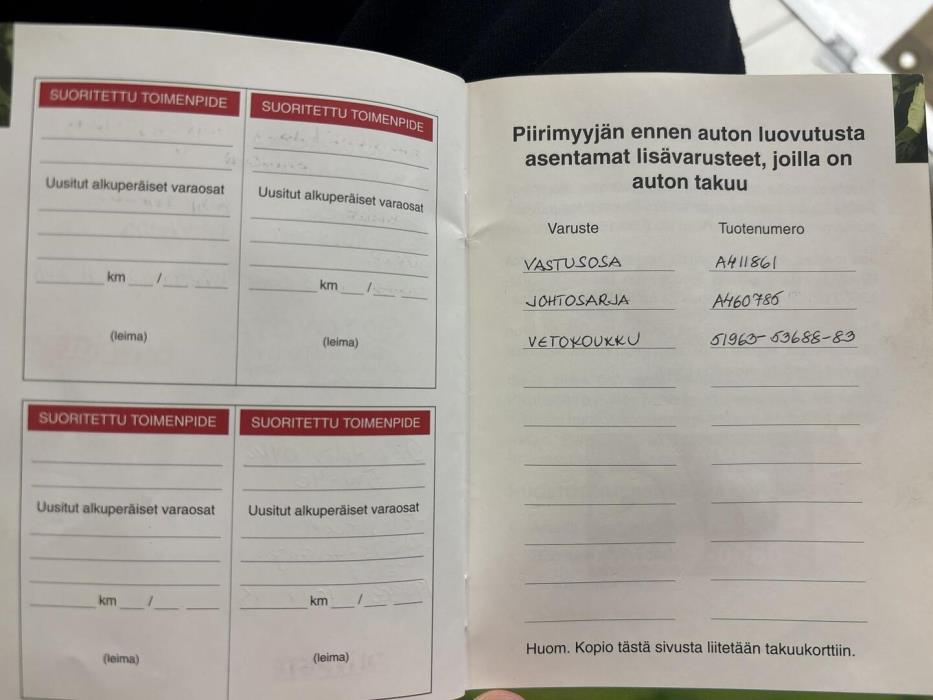 SUORITETTU TOIMENPIDE
Uusitut alkuperäiset varaosat
km /
(leima)
SUORITETTU TOIMENPIDE
Uusitut alkuperäiset varaosat
km /
(leima)
SUORITETTU TOIMENPIDE
Uusitut alkuperäiset varaosat
km /
(leima)
SUORITETTU TOIMENPIDE
Uusitut alkuperäiset varaosat
km /
(leima)
Piirimyyjän ennen auton luovutusta
asentamat lisävarusteet, joilla on
auton takuu
Varuste Tuotenumero
VASTUSOSA A411861
JOHTOSARJA A460785
VETOKOUKKU 51963-53688-83
Huom. Kopio tästä sivusta liitetään takuukorttiin.